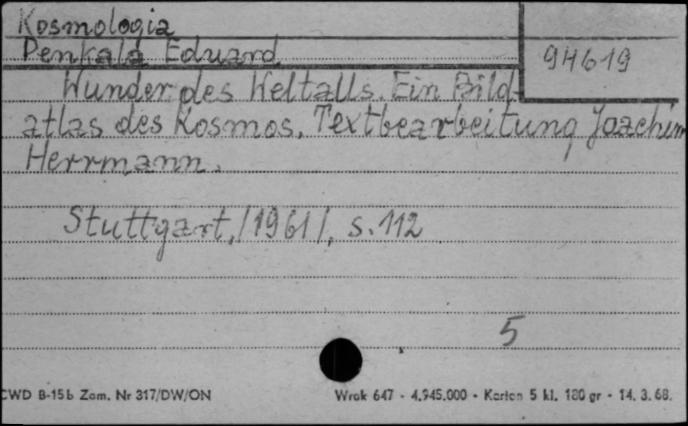 Kosmologia
Penkala Eduard
94619
Wunder des Weltalls. Ein Bild-
atlas des Kosmos. Textbearbeitung Joachim
Herrmann.
Stuttgart, /1961/, s. 112
5
CWD B-15b Zam. Nr 317/DW/ON
Wrak 647 - 4.945.000 - Karton 5 kl. 180 gr - 14. 3. 68.